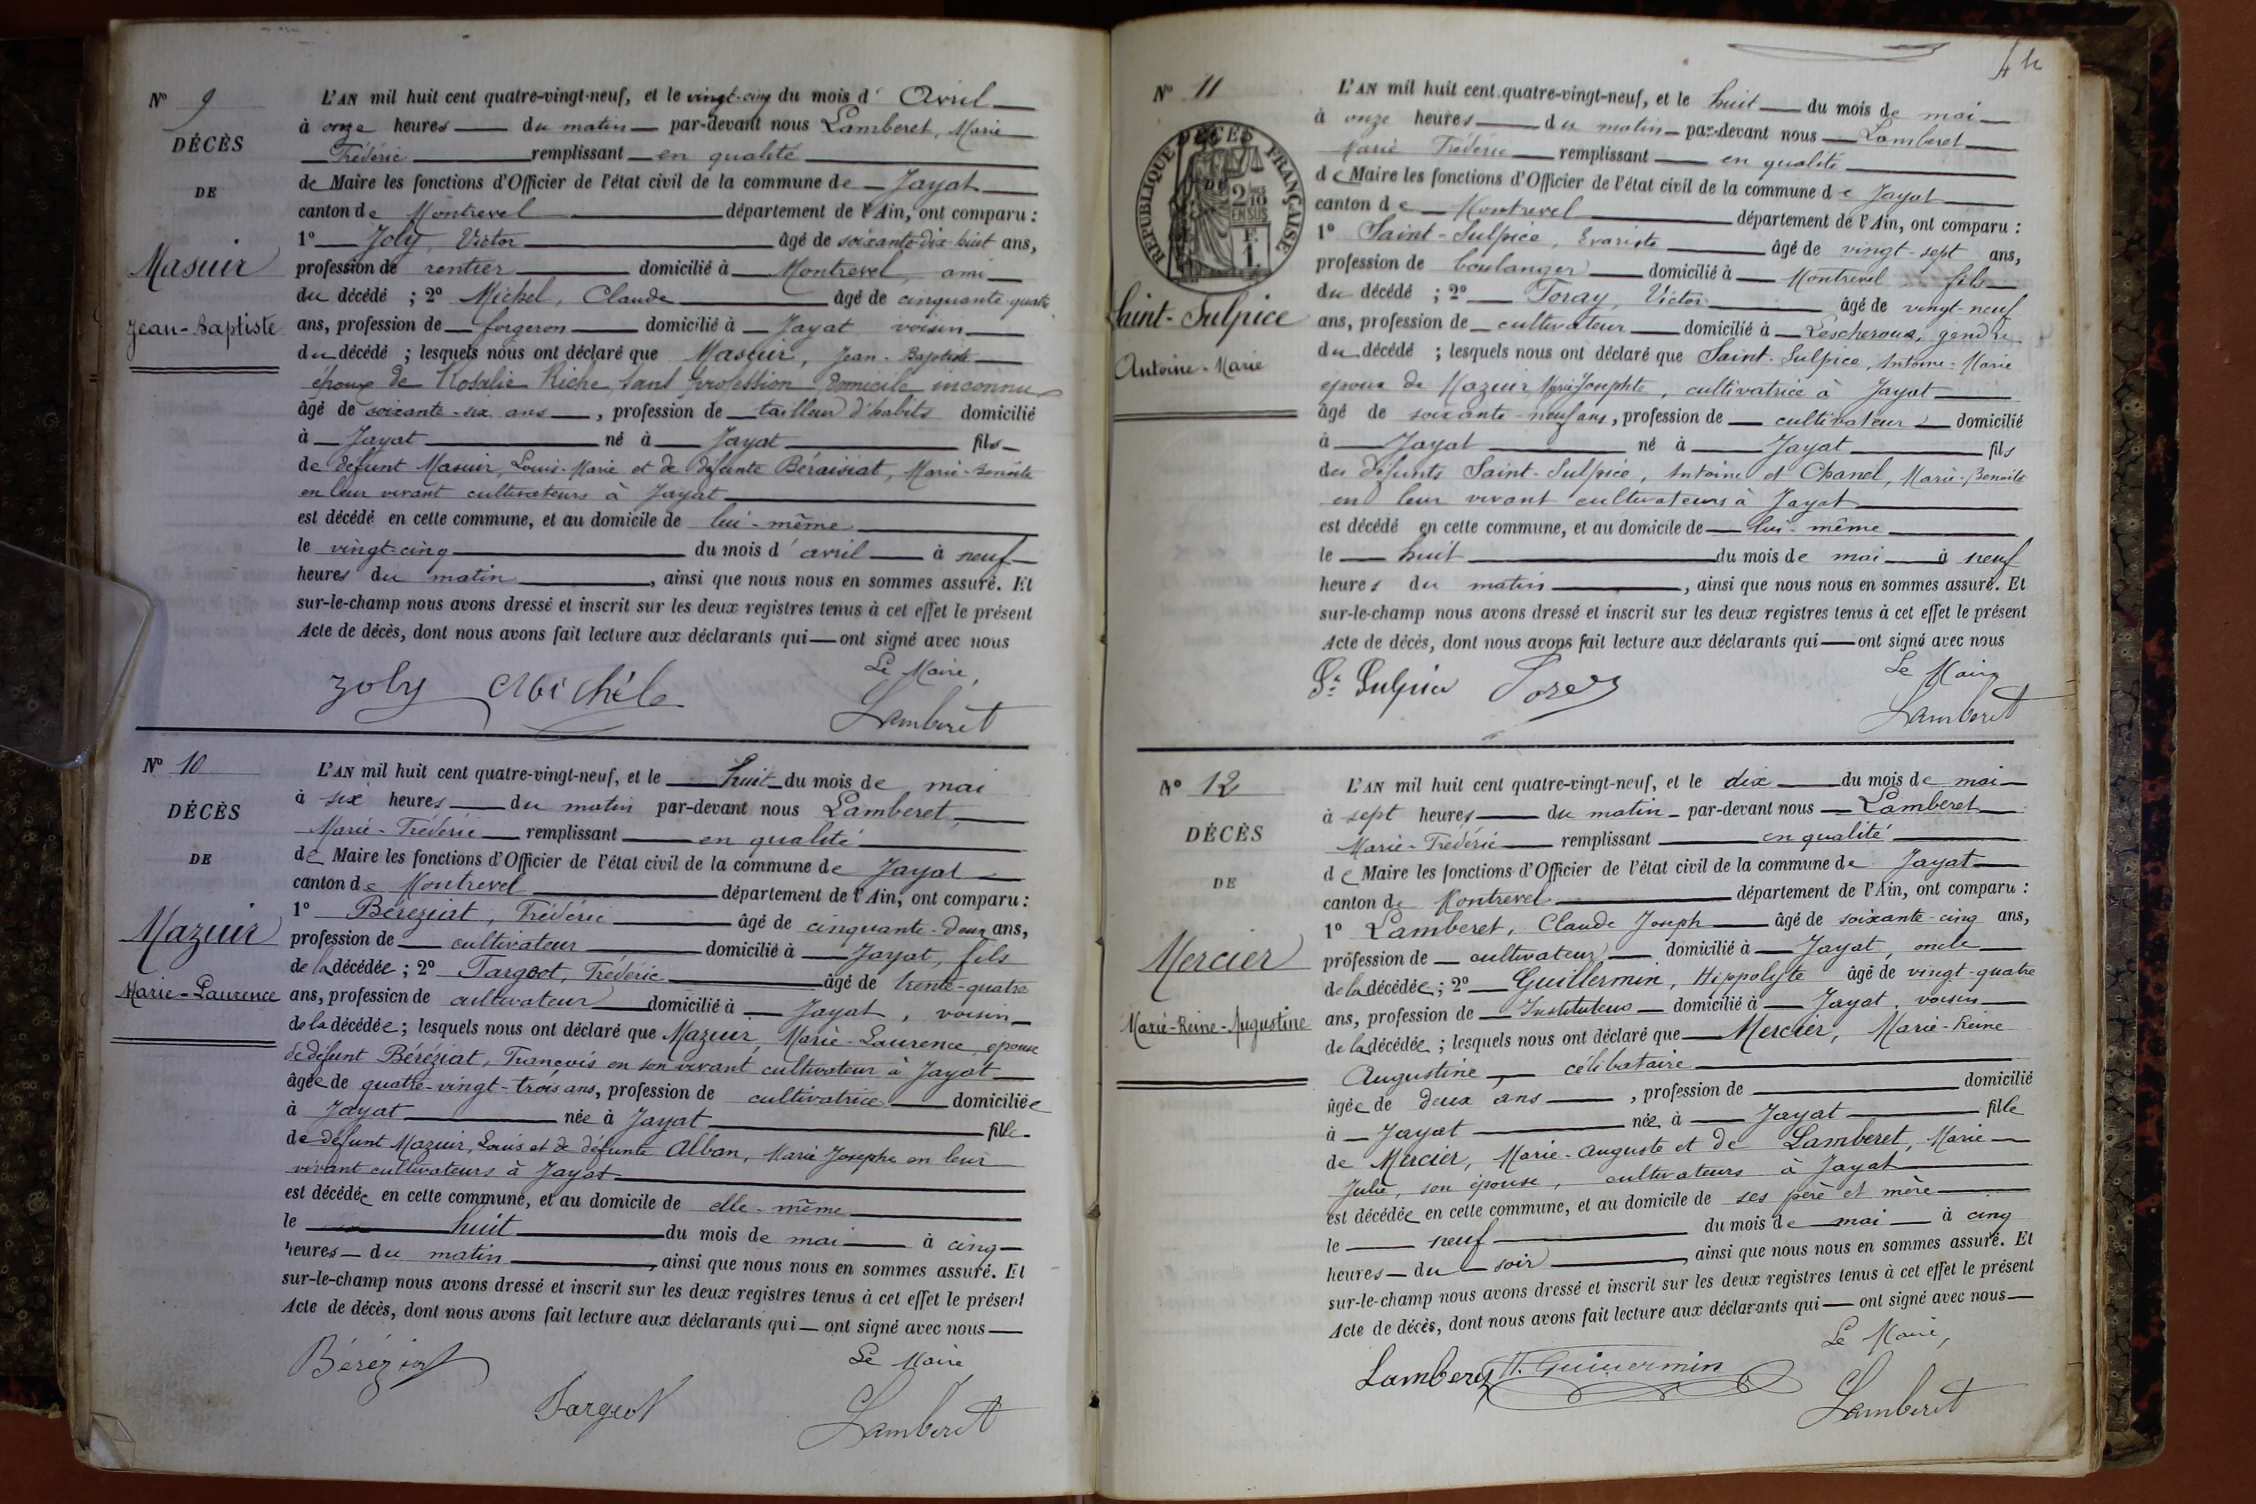 Nº 9
DÉCÈS
DE
Masuir
Jean-Baptiste
L'AN mil huit cent quatre-vingt-neuf, et le vingt-cinq du mois d' Avril
à onze heures du matin par-devant nous Lamberet, Marie
Frédéric remplissant en qualité
de Maire les fonctions d'Officier de l'état civil de la commune de Jayat
canton de Montrevel département de l'Ain, ont comparu :
1º Joly, Victor âgé de soixante-dix-huit ans,
profession de rentier domicilié à Montrevel, ami
du décédé ; 2º Michel, Claude âgé de cinquante-quatre
ans, profession de forgeron domicilié à Jayat voisin
du décédé ; lesquels nous ont déclaré que Masuir, Jean-Baptiste
époux de Rosalie Riche, sans profession domicile inconnu
âgé de soixante-six ans, profession de tailleur d'habits domicilié
à Jayat né à Jayat fils
de défunt Masuir, Louis-Marie et de défunte Béraisiat, Marie-Benoite
en leur vivant cultivateurs à Jayat
est décédé en cette commune, et au domicile de lui-même
le vingt-cinq du mois d'avril à neuf
heures du matin, ainsi que nous nous en sommes assuré. Et
sur-le-champ nous avons dressé et inscrit sur les deux registres tenus à cet effet le présent
Acte de décès, dont nous avons fait lecture aux déclarants qui ont signé avec nous
Le Maire,
Joly Michel
Lamberet
Nº 10
DÉCÈS
DE
Mazuir
Marie-Laurence
L'AN mil huit cent quatre-vingt-neuf, et le huit du mois de mai
à six heures du matin par-devant nous Lamberet,
Marie-Frédéric remplissant en qualité
de Maire les fonctions d'Officier de l'état civil de la commune de Jayat
canton de Montrevel département de l'Ain, ont comparu :
1º Béreziat, Frédéric âgé de cinquante-deux ans,
profession de cultivateur domicilié à Jayat, fils
de la décédée ; 2º Fargeot, Frédéric âgé de trente-quatre
ans, profession de cultivateur domicilié à Jayat, voisin
de la décédée ; lesquels nous ont déclaré que Mazuir, Marie-Laurence, épouse
de défunt Béreziat, François en son vivant cultivateur à Jayat
âgée de quatre-vingt-trois ans, profession de cultivatrice domiciliée
à Jayat née à Jayat fille
de défunt Mazuir, Louis et de défunte Alban, Marie Josephe en leur
vivant cultivateurs à Jayat
est décédée en cette commune, et au domicile de elle-même
le huit du mois de mai à cinq
heures du matin, ainsi que nous nous en sommes assuré. Et
sur-le-champ nous avons dressé et inscrit sur les deux registres tenus à cet effet le présent
Acte de décès, dont nous avons fait lecture aux déclarants qui ont signé avec nous
Béréziat
Le Maire
Fargeot
Lamberet
Nº 11
DÉCÈS
DE
RÉPUBLIQUE FRANÇAISE
2/10 EN SUS
F. 1.
Saint-Sulpice
Antoine-Marie
L'AN mil huit cent quatre-vingt-neuf, et le huit du mois de mai
à onze heures du matin par-devant nous Lamberet
Marie Frédéric remplissant en qualité
de Maire les fonctions d'Officier de l'état civil de la commune de Jayat
canton de Montrevel département de l'Ain, ont comparu :
1º Saint-Sulpice, Evariste âgé de vingt-sept ans,
profession de boulanger domicilié à Montrevel fils
du décédé ; 2º Foray, Victor âgé de vingt-neuf
ans, profession de cultivateur domicilié à Lescheroux, gendre
du décédé ; lesquels nous ont déclaré que Saint-Sulpice, Antoine-Marie
époux de Mazuir, Marie Josephte, cultivatrice à Jayat
âgé de soixante-neuf ans, profession de cultivateur domicilié
à Jayat né à Jayat fils
des défunts Saint-Sulpice, Antoine et Chanel, Marie-Benoite
en leur vivant cultivateurs à Jayat
est décédé en cette commune, et au domicile de lui-même
le huit du mois de mai à neuf
heures du matin, ainsi que nous nous en sommes assuré. Et
sur-le-champ nous avons dressé et inscrit sur les deux registres tenus à cet effet le présent
Acte de décès, dont nous avons fait lecture aux déclarants qui ont signé avec nous
Le Maire
St Sulpice Foray
Lamberet
Nº 12
DÉCÈS
DE
Mercier
Marie-Reine-Augustine
L'AN mil huit cent quatre-vingt-neuf, et le dix du mois de mai
à sept heures du matin par-devant nous Lamberet
Marie-Frédéric remplissant en qualité
de Maire les fonctions d'Officier de l'état civil de la commune de Jayat
canton de Montrevel département de l'Ain, ont comparu :
1º Lamberet, Claude Joseph âgé de soixante-cinq ans,
profession de cultivateur domicilié à Jayat, oncle
de la décédée ; 2º Guillermin, Hippolyte âgé de vingt-quatre
ans, profession de Instituteur domicilié à Jayat, voisin
de la décédée ; lesquels nous ont déclaré que Mercier, Marie-Reine
Augustine, célibataire
âgée de deux ans, profession de domicilié
à Jayat née à Jayat fille
de Mercier, Marie-Auguste et de Lamberet, Marie
Julie, son épouse, cultivateurs à Jayat
est décédée en cette commune, et au domicile de ses père et mère
le neuf du mois de mai à cinq
heures du soir, ainsi que nous nous en sommes assuré. Et
sur-le-champ nous avons dressé et inscrit sur les deux registres tenus à cet effet le présent
Acte de décès, dont nous avons fait lecture aux déclarants qui ont signé avec nous
Le Maire,
Lamberet H. Guillermin
Lamberet